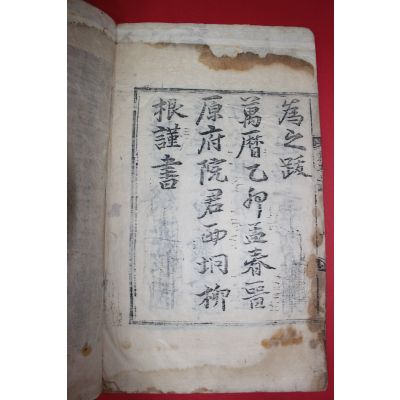 爲之跋
萬曆乙卯孟春晉
原府院君西坰柳
根謹書